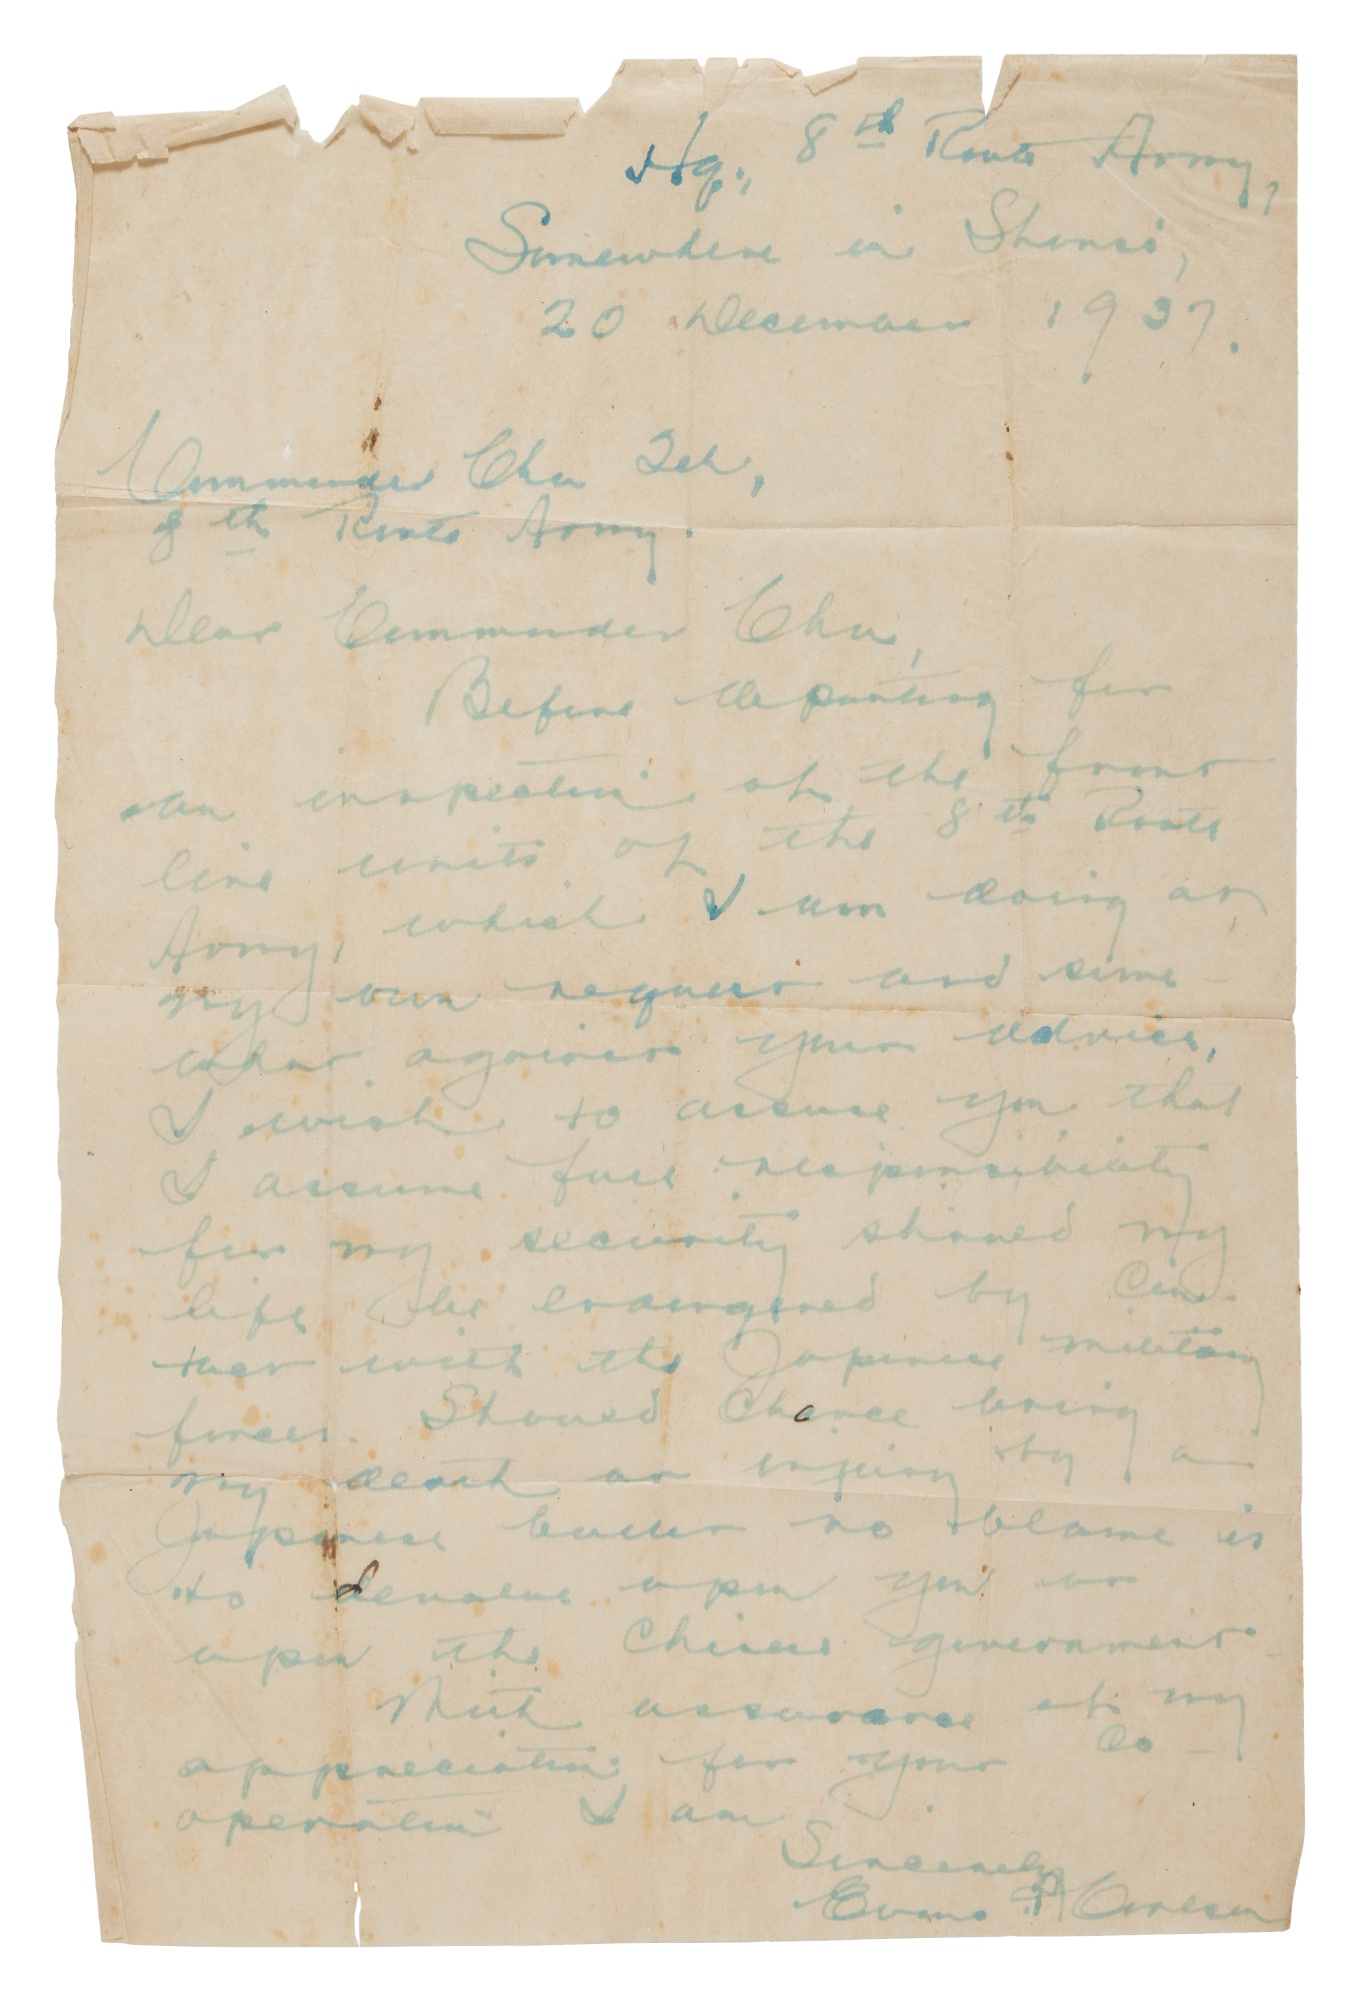 Hq., 8th Route Army,
Somewhere in Shansi,
20 December 1937.
Commander Chu Teh,
8th Route Army.
Dear Commander Chu,
Before departing for
an inspection of the front
line units of the 8th Route
Army, which I am doing at
my own request and some-
what against your advice,
I wish to assure you that
I assume full responsibility
for my security should my
life be endangered by con-
tact with the Japanese military
forces. Should chance bring
my death or injury by a
Japanese bullet no blame is
to devolve upon you or
upon the Chinese government.
With assurance of my
appreciation for your co-
operation I am
Sincerely
Evans F Carlson